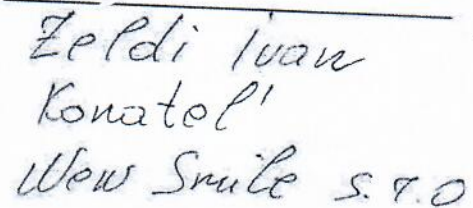 Zeldi Ivan
Konateľ
New Smile s.r.o